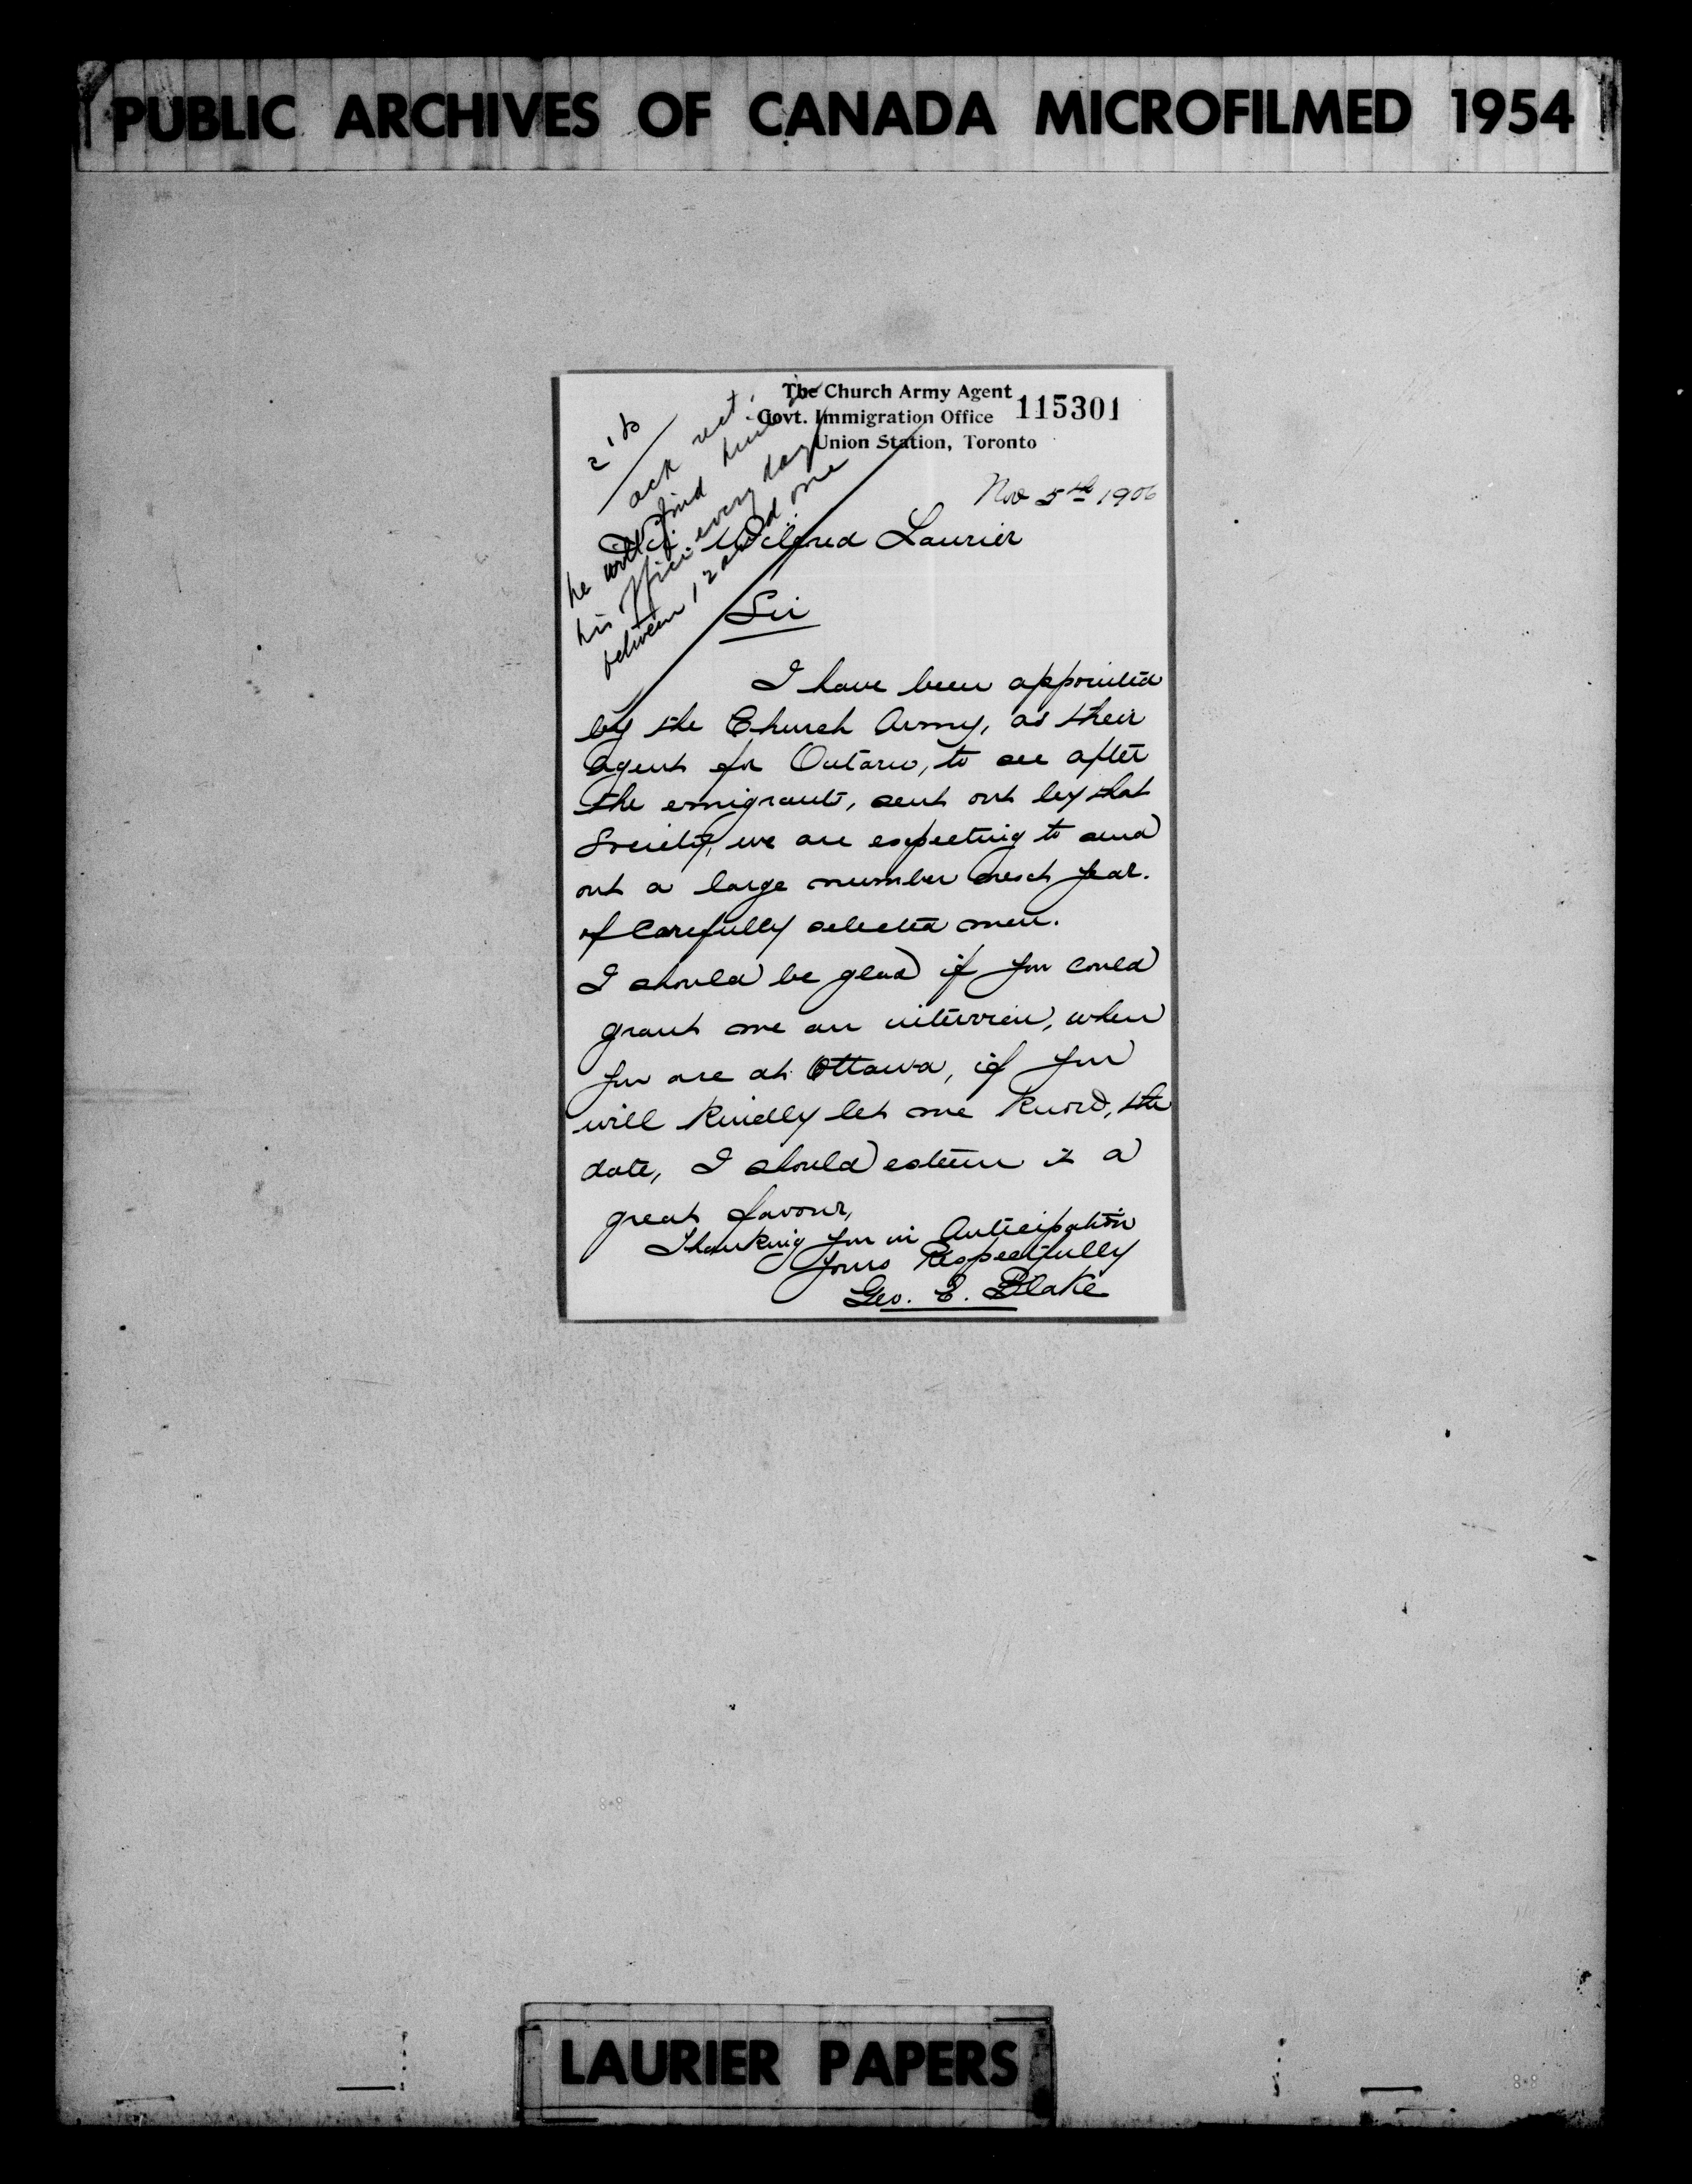 PUBLIC ARCHIVES OF CANADA MICROFILMED 1954
The Church Army Agent
Govt. Immigration Office
Union Station, Toronto
115301
ack rect.
he will find him in
his office every day
between 12 and one
Nov 5th 1906
Sir Wilfred Laurier
Sir
I have been appointed
by the Church Army, as their
agent for Ontario, to see after
the emigrants, sent out by that
Society, we are expecting to send
out a large number next year.
of Carefully selected men.
I should be glad if you could
grant me an interview, when
you are at Ottawa, if you
will kindly let me know, the
date, I should esteem it a
great favour,
Thanking you in Anticipation
Yours Respectfully
Geo. E. Blake
LAURIER PAPERS